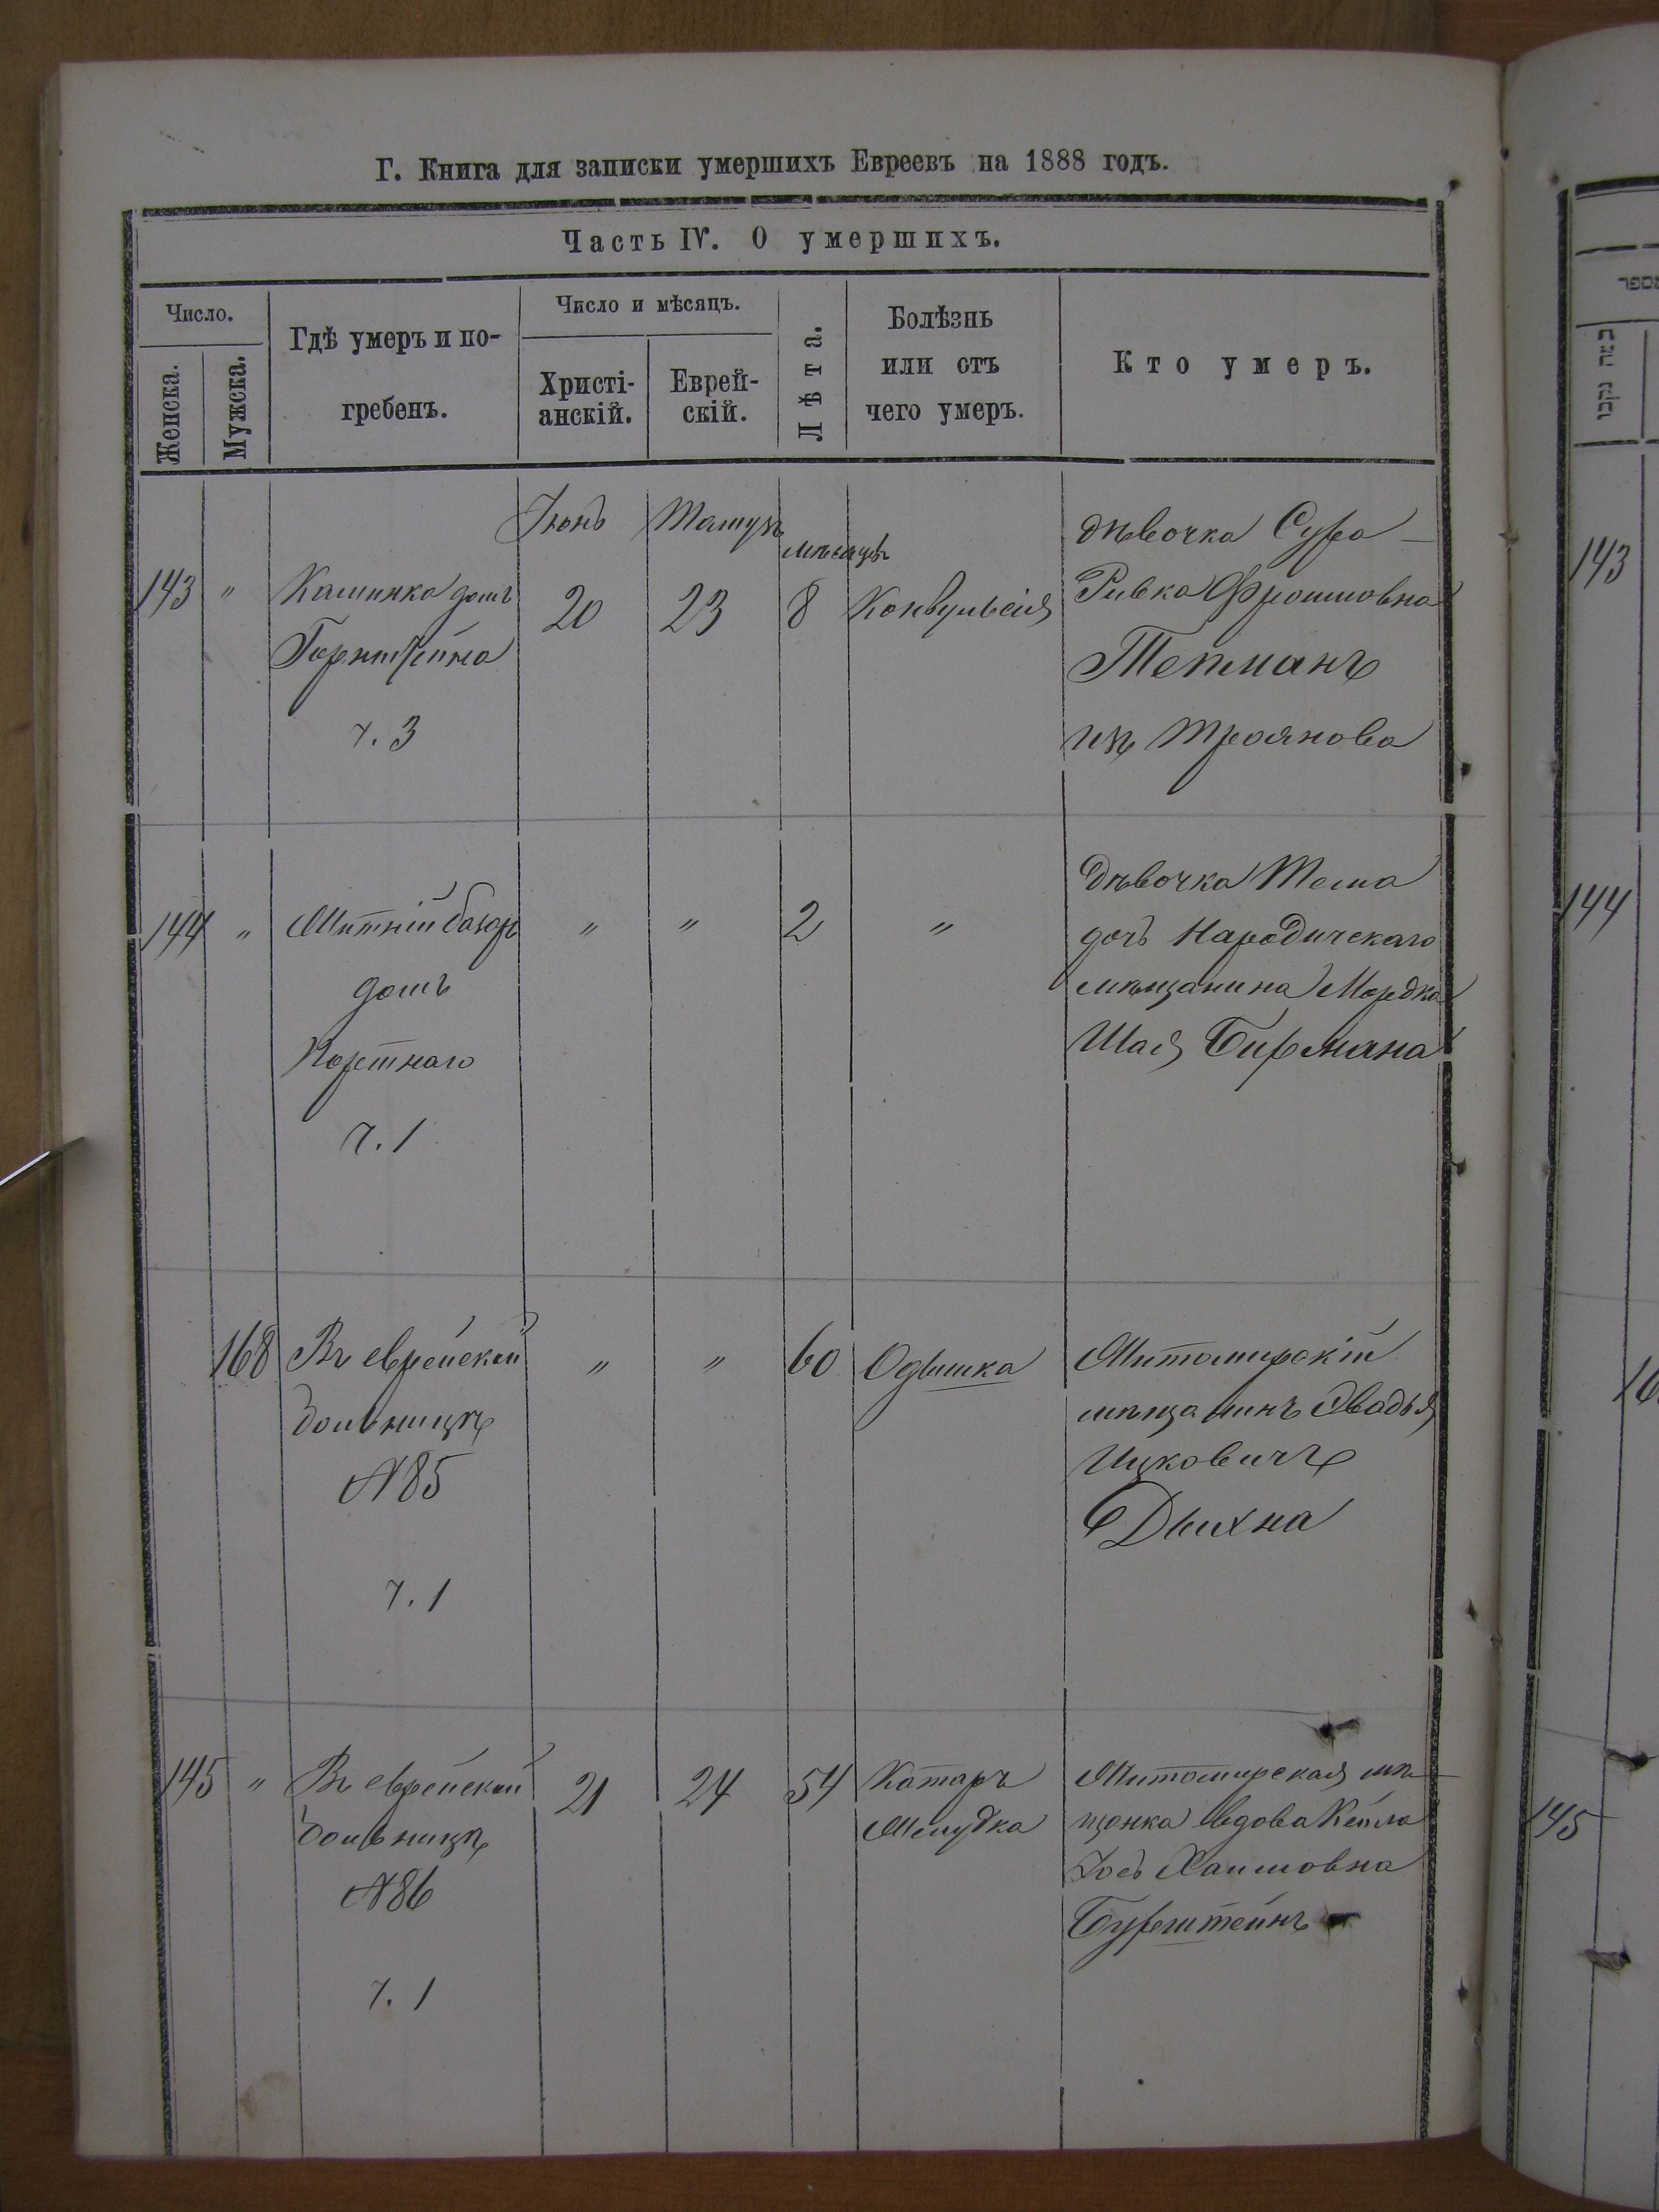 Г. Книга для записки умершихъ Евреевъ на 1888 годъ.
Часть IV. О умершихъ.
Число.
Женска.
Мужска.
Гдѣ умеръ и по-
гребенъ.
Число и мѣсяцъ.
Христі-
анскій.
Еврей-
скій.
Лѣта.
Болѣзнь
или отъ
чего умеръ.
Кто умеръ.
Іюнь
Тамузъ
мѣсяцъ
143
"
Каминка домъ
ч. 3
20
23
8
Конвульсія
дѣвочка Сура
Ривка Фроимовна
Тепманъ
изъ Троянова
144
"
Житній базаръ
домъ
Портнаго
ч. 1
"
"
2
"
Дѣвочка
дочь Народичскаго
мѣщанина Мордка
Шая Бирмана
168
Въ еврейской
больницѣ
№ 85
ч. 1
"
"
60
Одышка
Житомирскій
мѣщанинъ Овадья
Ицковичъ
Дыхна
145
"
Въ еврейской
больницѣ
№ 86
ч. 1
21
24
54
Катаръ
Желудка
Житомирская мѣ-
щанка вдова Кейла
Хаимовна
Бурштейнъ
143
144
16
145